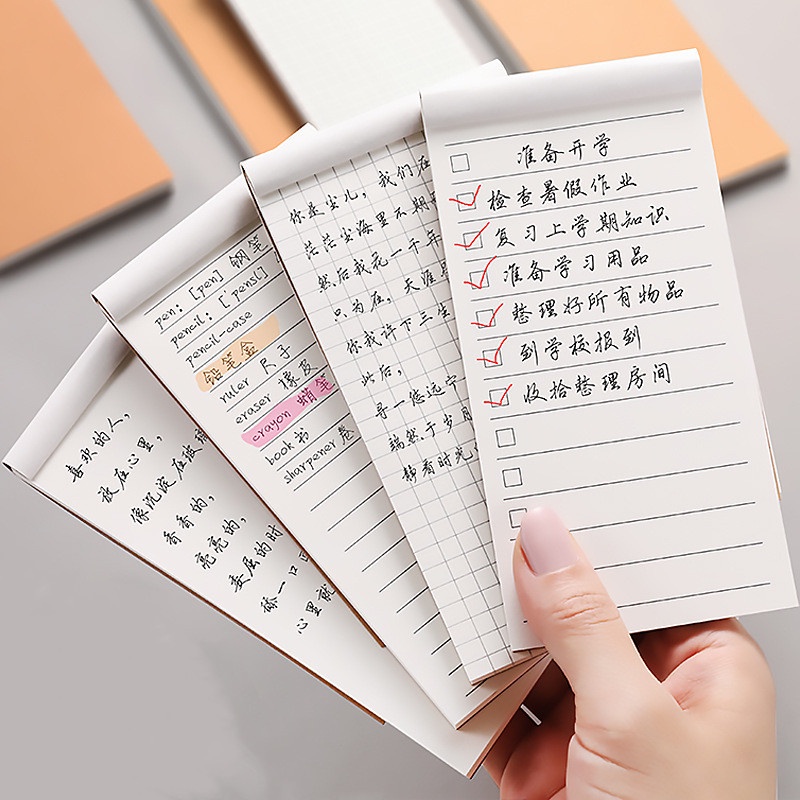 准备开学
检查暑假作业
复习上学期知识
准备学习用品
整理好所有物品
到学校报到
收拾整理房间
你是尘儿，我们在
茫茫尘海里不期
然后我花一千年
只为在，天涯
你我许下三生
此后，
寻一您远宁
端然于岁月
静看时光
pen: [pen] 钢笔
pencil: [pensl]
pencil-case
铅笔盒
ruler 尺子
eraser 橡皮
crayon 蜡笔
book 书
sharpener 卷
喜欢的人，
放在心里，
像沉淀在玻璃
香香的，
亮亮的，
委屈的时
舔一口
心里就